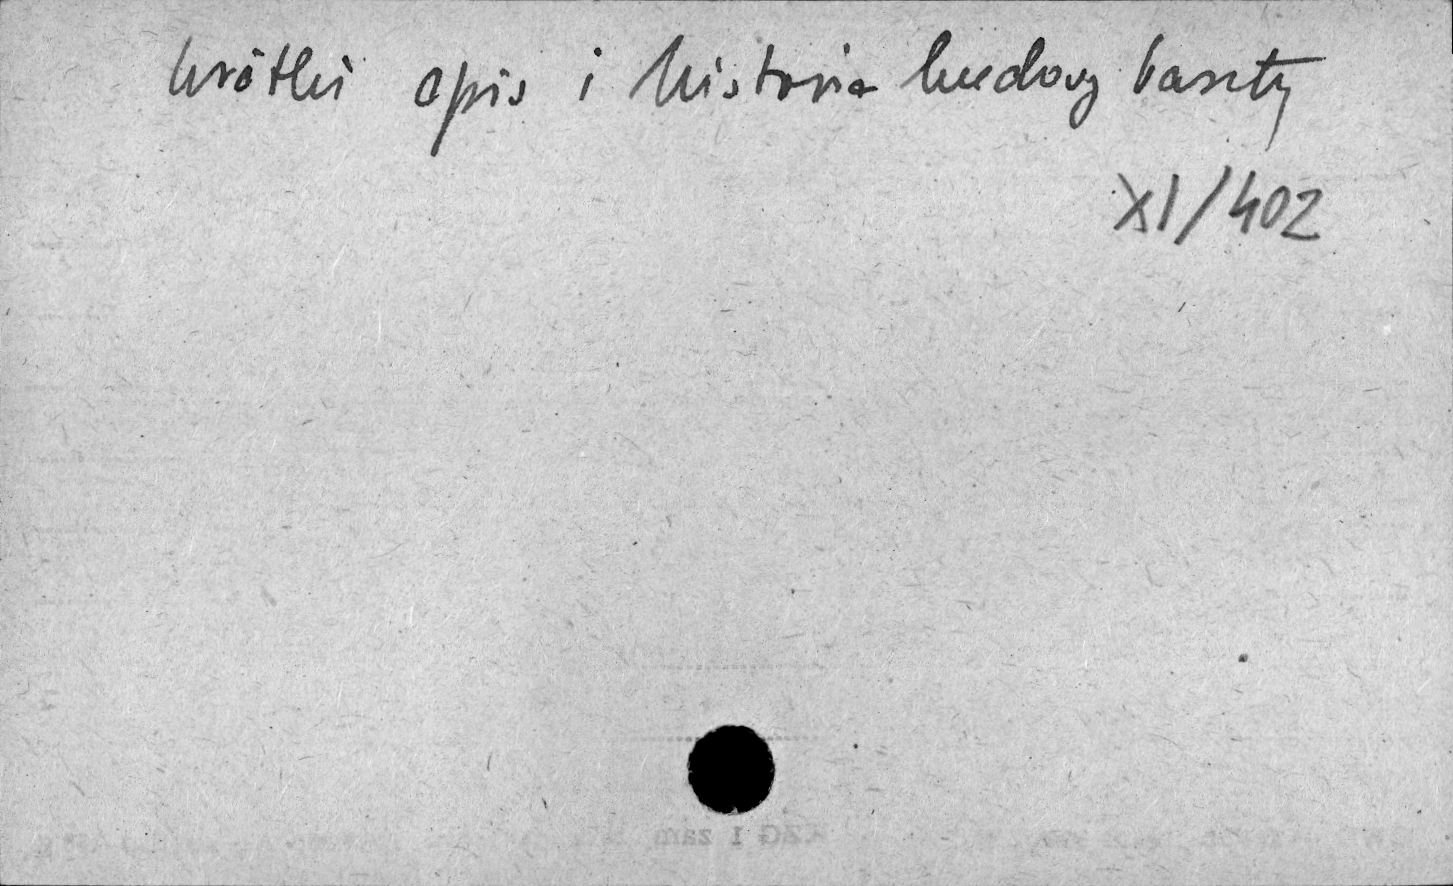 krótki opis i historia budowy baszty
XI/402